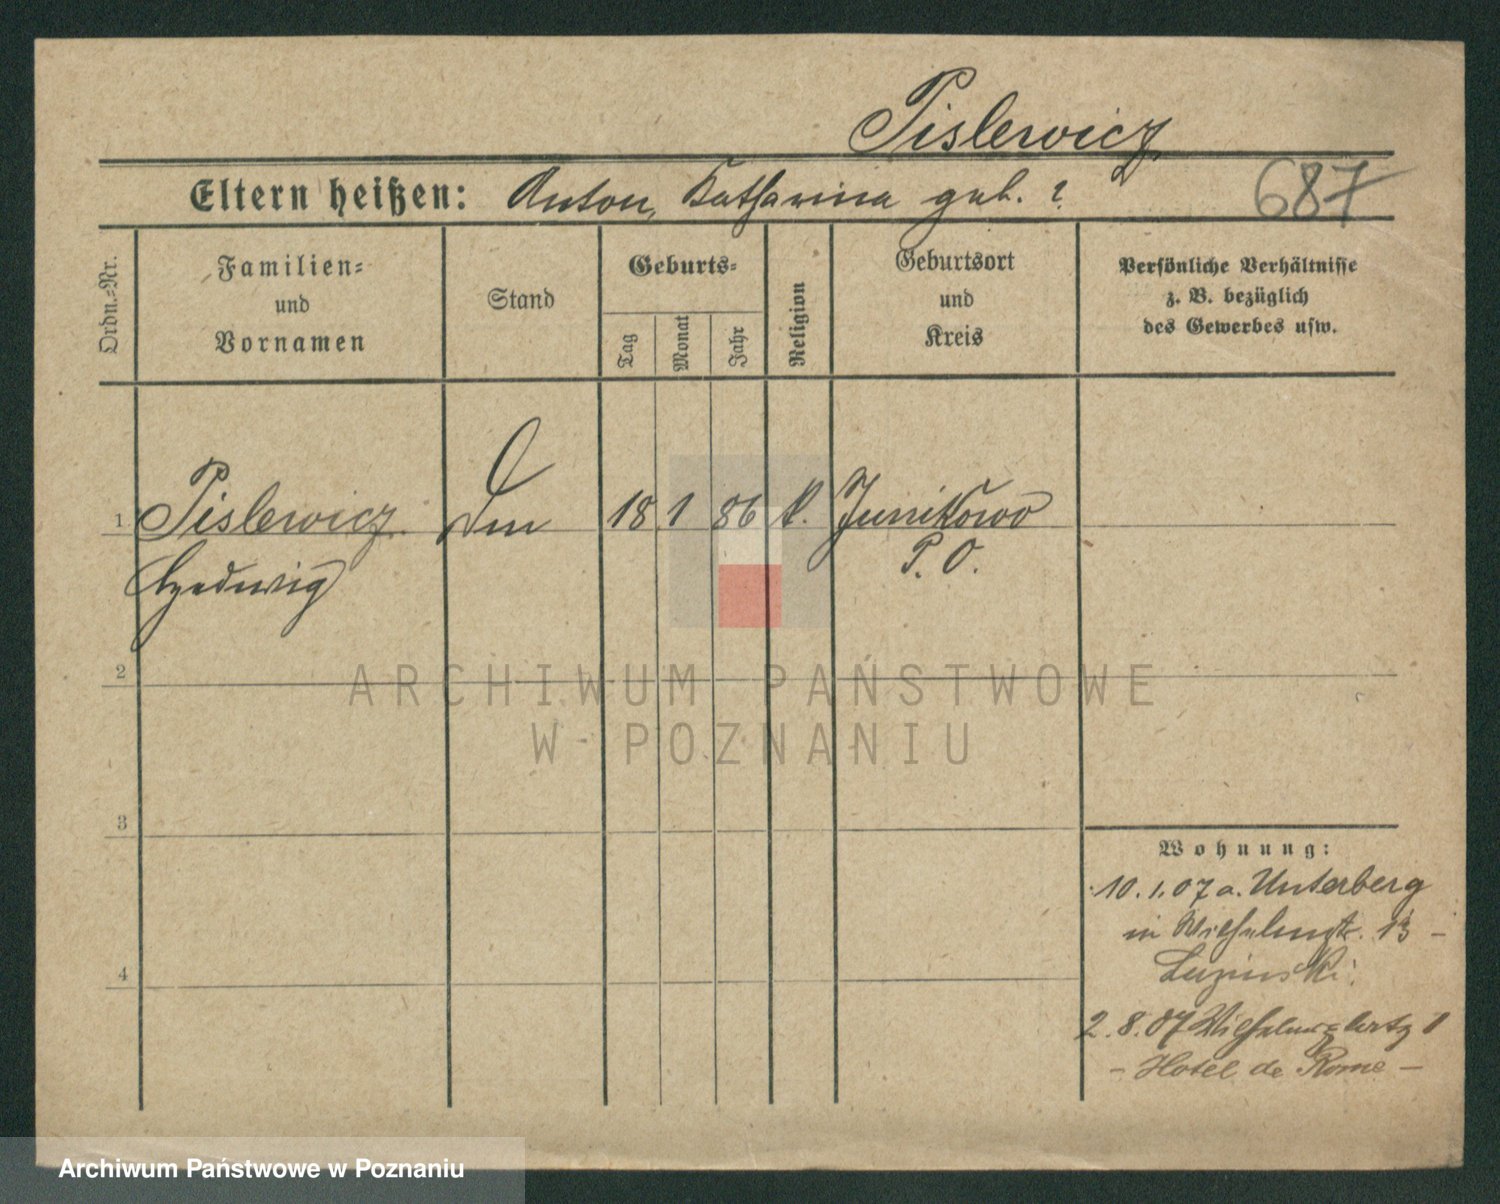 Pislewicz
Eltern heißen: Anton, Katharina geb. ?
687
Ordn.=Nr.
Familien=
und
Vornamen
Stand
Geburts=
Tag
Monat
Jahr
Religion
Geburtsort
und
Kreis
Persönliche Verhältnisse
z. B. bezüglich
des Gewerbes usw.
1 Pislewicz 18 1 86 k. Junikowo
Hedwig P. O.
2
ARCHIWUM PAŃSTWOWE
W POZNANIU
3
Wohnung:
10.1.07 a. Unterberg
in Wilhelmstr. 13 –
4
2.8.07 Wilhelmsplatz 1
– Hotel de Rome –
Archiwum Państwowe w Poznaniu